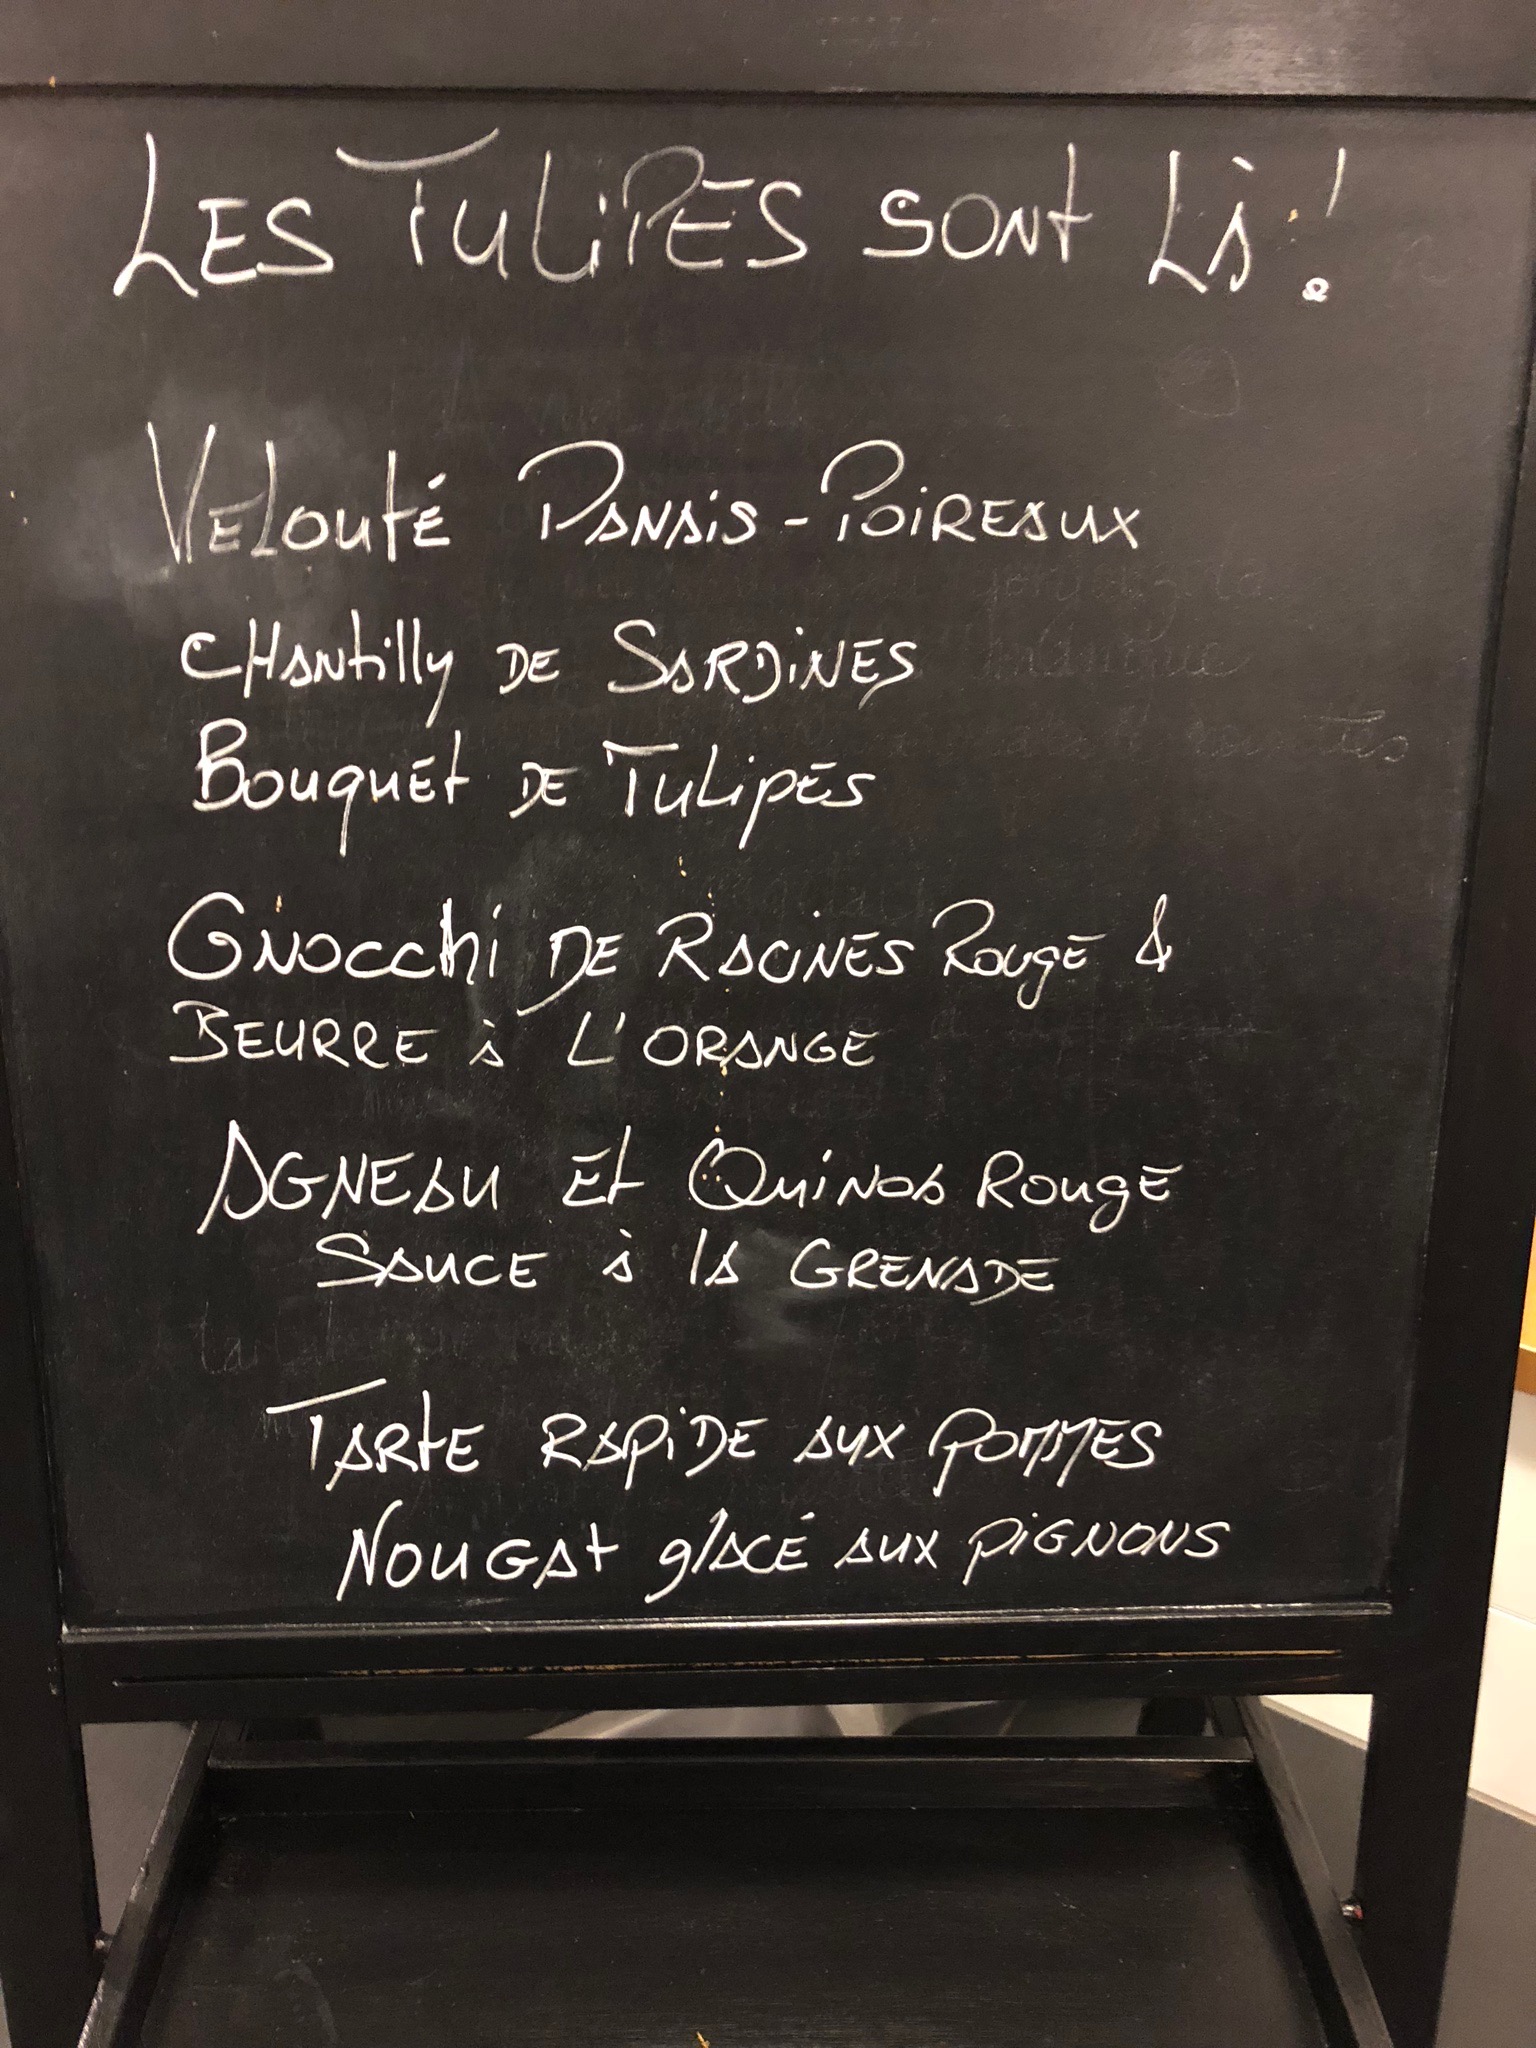 LES TULIPES SONT LÀ !
VELOUTÉ PANAIS-POIREAUX
CHANTILLY DE SARDINES
BOUQUET DE TULIPES
GNOCCHI DE RACINES ROUGE &
BEURRE À L'ORANGE
AGNEAU ET QUINOA ROUGE
SAUCE À LA GRENADE
TARTE RAPIDE AUX POMMES
NOUGAT GLACÉ AUX PIGNONS